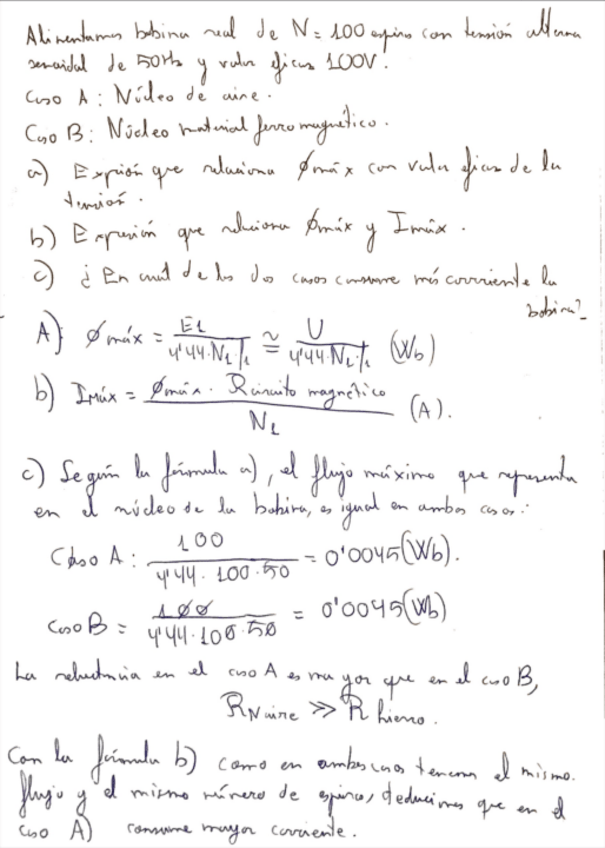 Alimentamos bobina real de N = 100 espiras con tensión alterna
senoidal de 50Hz y valor eficaz 100V.
Caso A: Núcleo de aire.
Caso B: Núcleo material ferromagnético.
a) Expresión que relaciona ϕmáx con valor eficaz de la
tensión.
b) Expresión que relaciona ϕmáx y Imáx.
c) ¿En cuál de los dos casos consume más corriente la
bobina?
A) ϕmáx = E1 / 4'44·N1·f1 ≅ U / 4'44·N1·f1 (Wb)
b) Imáx = ϕmáx · Rcircuito magnético / N1 (A).
c) Según la fórmula a), el flujo máximo que representa
en el núcleo de la bobina, es igual en ambos casos:
Caso A: 100 / 4'44·100·50 = 0'0045 (Wb).
Caso B = 100 / 4'44·100·50 = 0'0045 (Wb)
La reluctancia en el caso A es mayor que en el caso B,
RN aire ≫ R hierro.
Con la fórmula b) como en ambos casos tenemos el mismo.
flujo y el mismo número de espiras, deducimos que en el
caso A) consume mayor corriente.